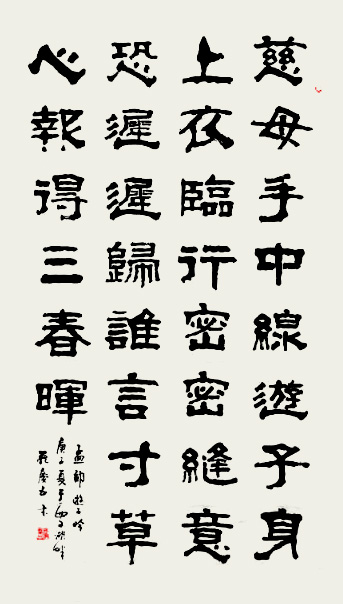 慈母手中線遊子身
上衣臨行密密縫意
恐遲遲歸誰言寸草
心報得三春暉
孟郊遊子吟
庚子夏于西子湖畔